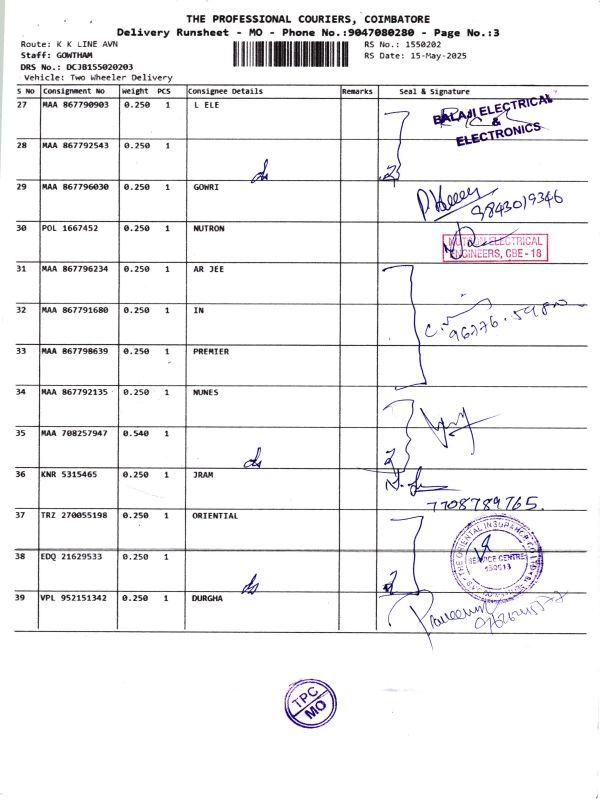 THE PROFESSIONAL COURIERS, COIMBATORE
Delivery Runsheet - MO - Phone No.:9047080280 - Page No.:3
Route: K K LINE AVN RS No.: 1550202
Staff: GOWTHAM RS Date: 15-May-2025
DRS No.: DCJB155020203
Vehicle: Two Wheeler Delivery
S No Consignment No Weight PCS Consignee Details Remarks Seal & Signature
27 MAA 867790903 0.250 1 L ELE
BALAJI ELECTRICAL
&
ELECTRONICS
28 MAA 867792543 0.250 1
do 2
29 MAA 867796030 0.250 1 GOWRI
9843019346
30 POL 1667452 0.250 1 NUTRON
NUTRON ELECTRICAL
ENGINEERS, CBE - 18
31 MAA 867796234 0.250 1 AR JEE
32 MAA 867791680 0.250 1 IN
33 MAA 867798639 0.250 1 PREMIER
34 MAA 867792135 0.250 1 NUNES
35 MAA 708257947 0.540 1
do 2
36 KNR 5315465 0.250 1 JRAM
7708789765.
37 TRZ 270055198 0.250 1 ORIENTIAL
THE ORIENTAL INSURANCE CO
SERVICE CENTRE
38 EDQ 21629533 0.250 1
do 2
39 VPL 952151342 0.250 1 DURGHA
Praveen
TPC
MO